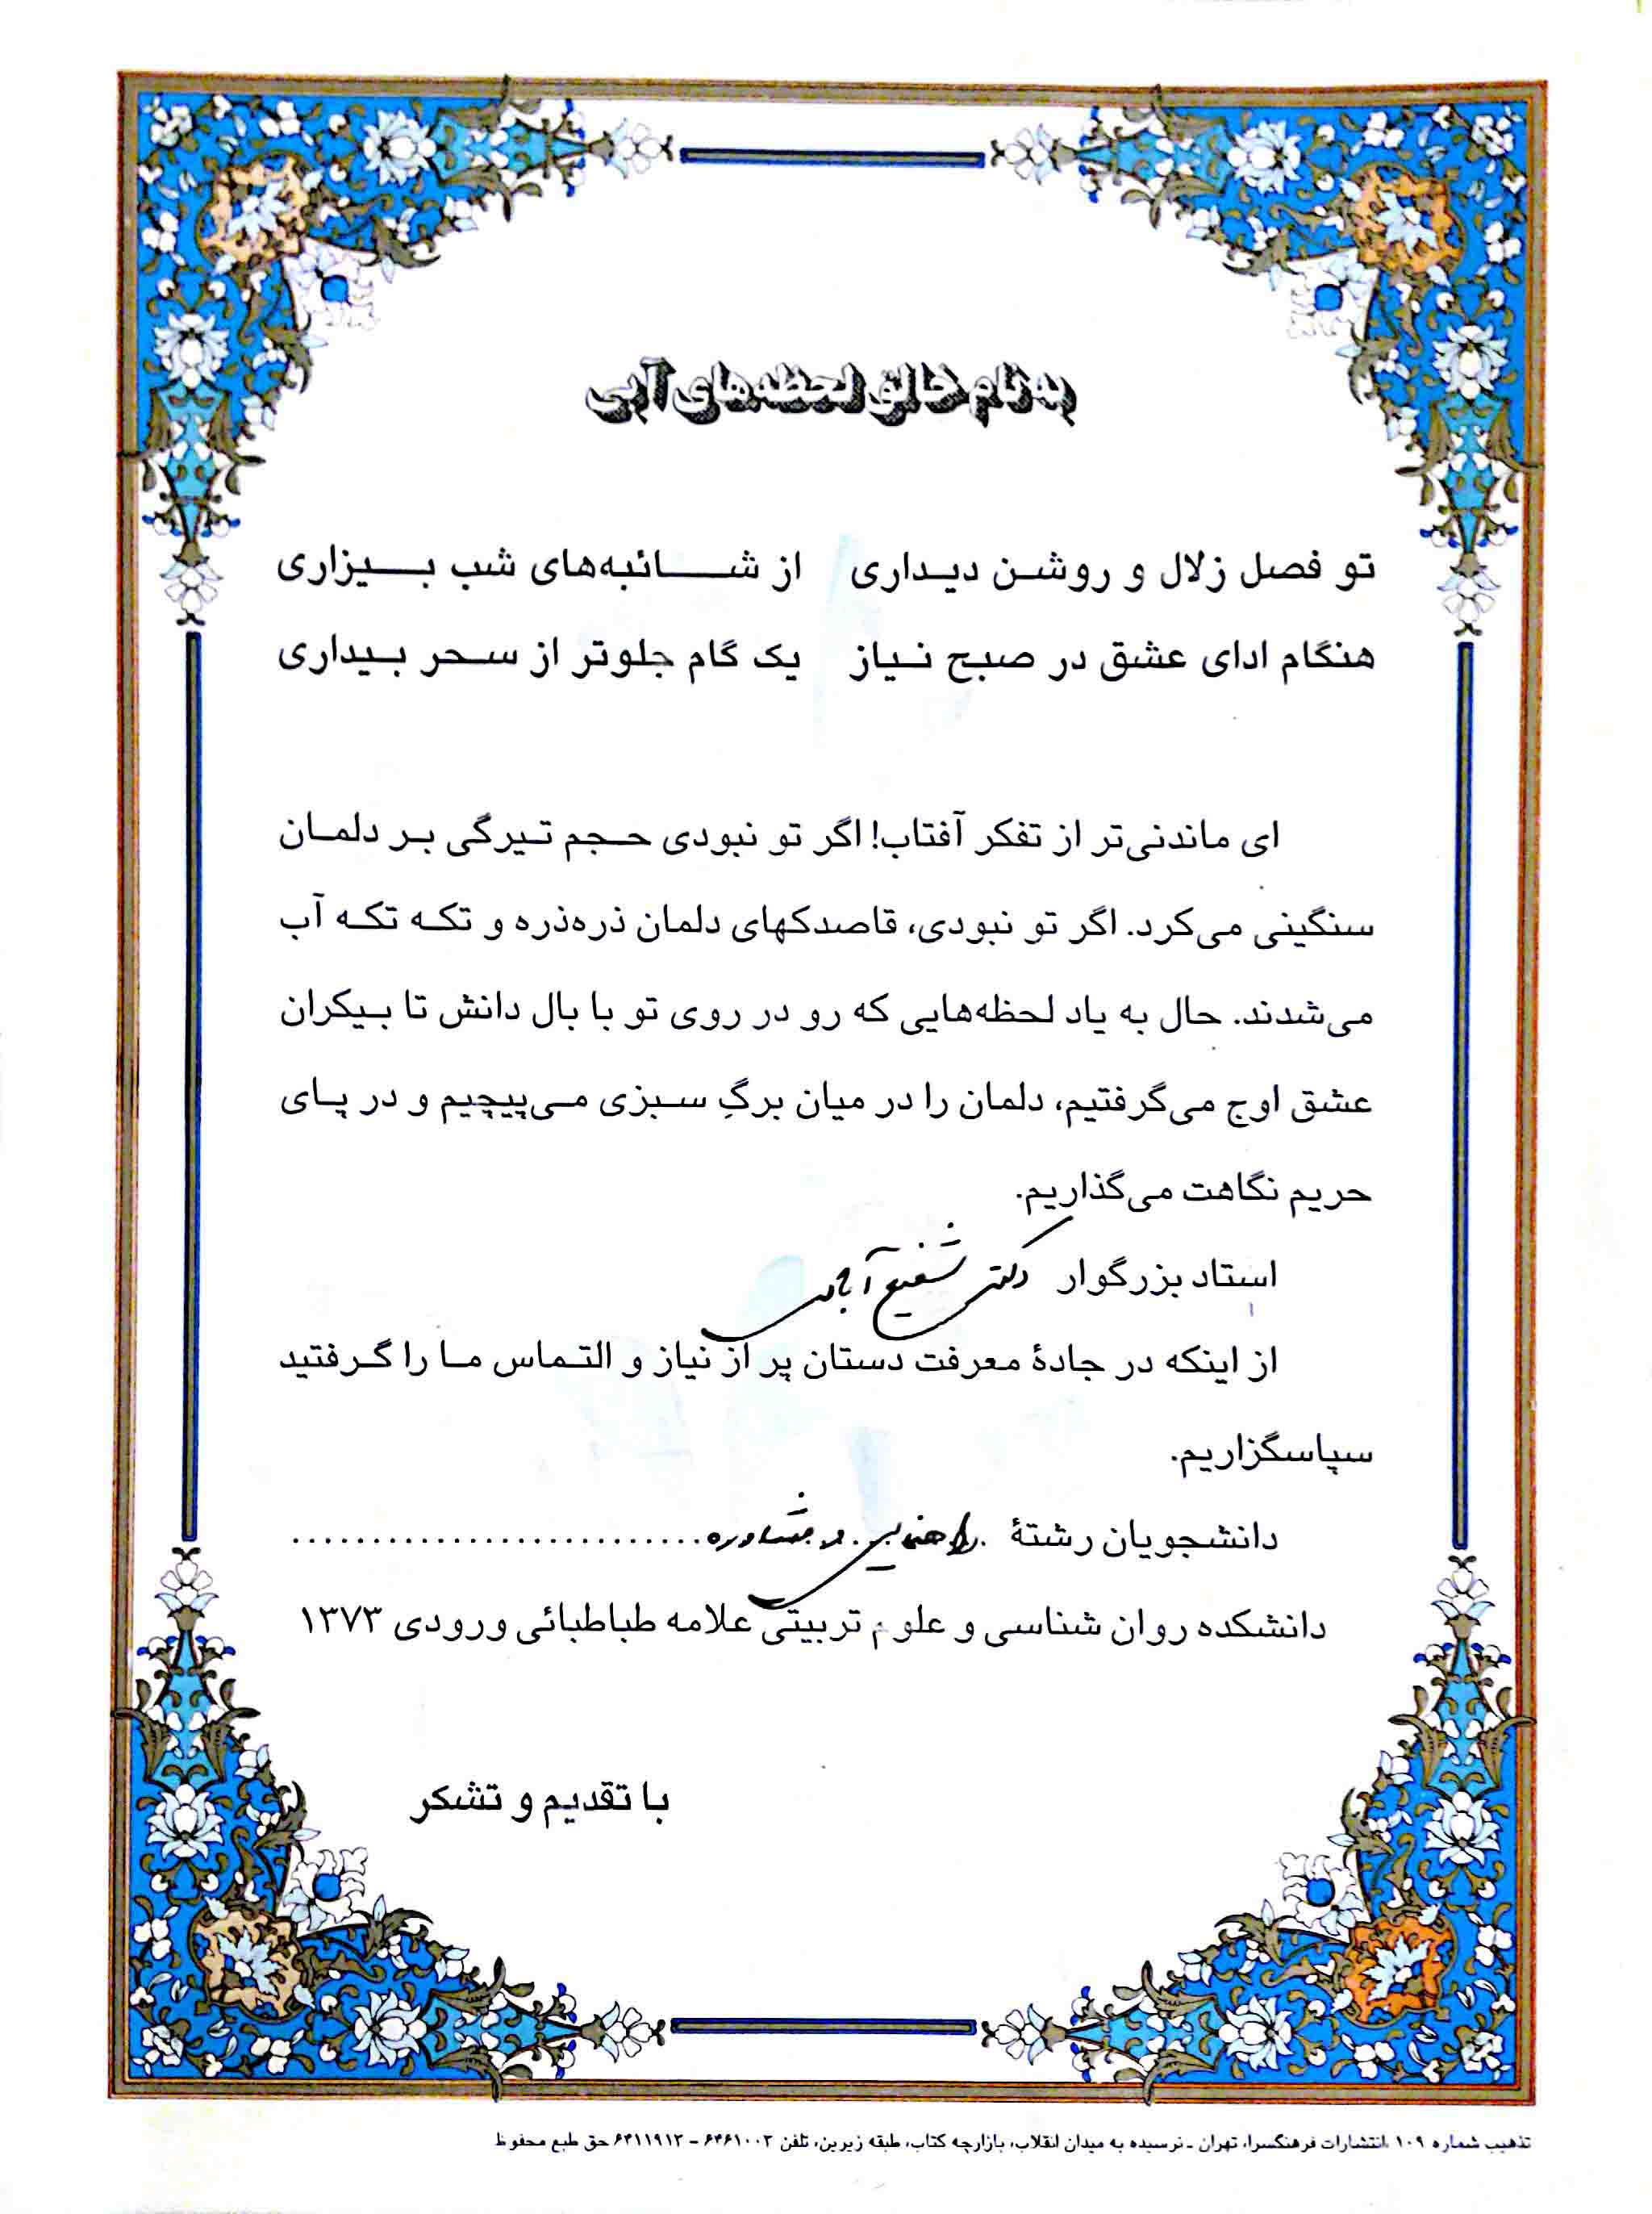 به نام خالق لحظه‌های آبی
تو فصل زلال و روشن دیداری از شائبه‌های شب بیزاری
هنگام ادای عشق در صبح نیاز یک گام جلوتر از سحر بیداری
ای ماندنی‌تر از تفکر آفتاب! اگر تو نبودی حجم تیرگی بر دلمان
سنگینی می‌کرد. اگر تو نبودی، قاصدکهای دلمان ذره‌ذره و تکه تکه آب
می‌شدند. حال به یاد لحظه‌هایی که رو در روی تو با بال دانش تا بیکران
عشق اوج می‌گرفتیم، دلمان را در میان برگِ سبزی می‌پیچیم و در پای
حریم نگاهت می‌گذاریم.
استاد بزرگوار دکتر شفیع آبادی
از اینکه در جادهٔ معرفت دستان پر از نیاز و التماس ما را گرفتید
سپاسگزاریم.
دانشجویان رشتهٔ راهنمایی و مشاوره
دانشکده روان شناسی و علوم تربیتی علامه طباطبائی ورودی ۱۳۷۳
با تقدیم و تشکر
تذهیب شماره ۱۰۹ انتشارات فرهنگسرا، تهران ـ نرسیده به میدان انقلاب، بازارچه کتاب، طبقه زیرین، تلفن ۶۴۶۱۰۰۳ - ۶۴۱۱۹۱۳ حق طبع محفوظ